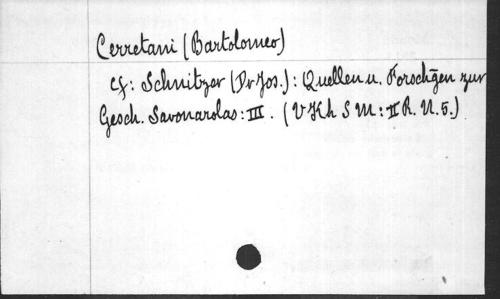 Cerretani (Bartolomeo)
cf: Schnitzer (Dr Jos.): Quellen u. Forschgen zur
Gesch. Savonarolas: III. (V Kh S M: II R. N. 5.)